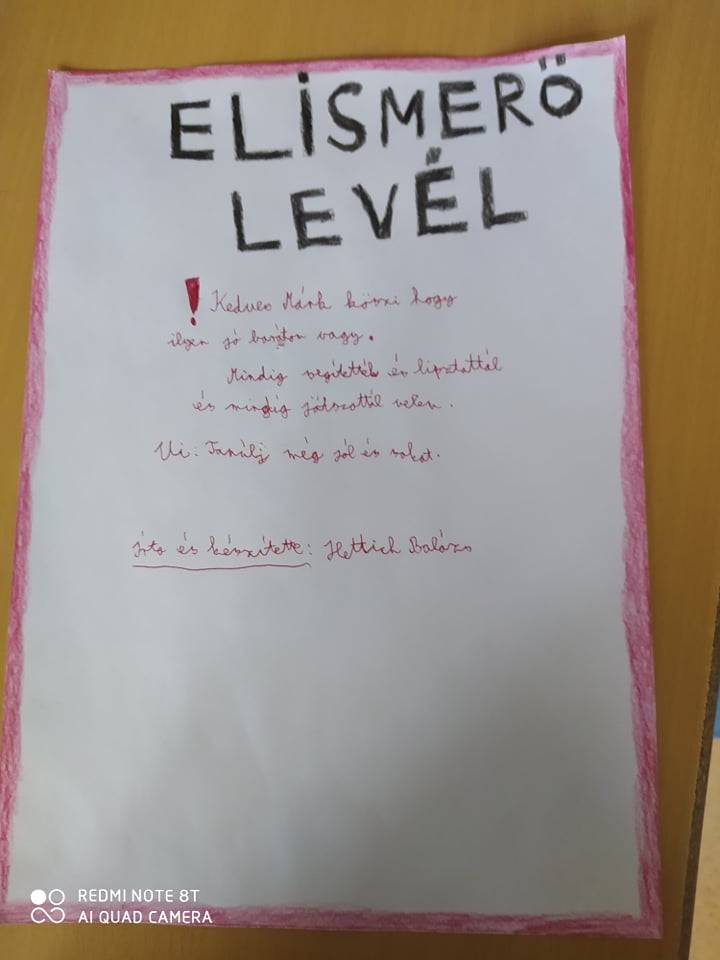 ELİSMERÖ
LEVÉL
! Kedves Márk köszi hogy
ilyen jó barátom vagy.
Mindig segítettél és
és mindig játszottál velem.
Ui: Tanúlj még jól és sokat.
Írta és készítette: Hettich Balázs
REDMI NOTE 8T
AI QUAD CAMERA